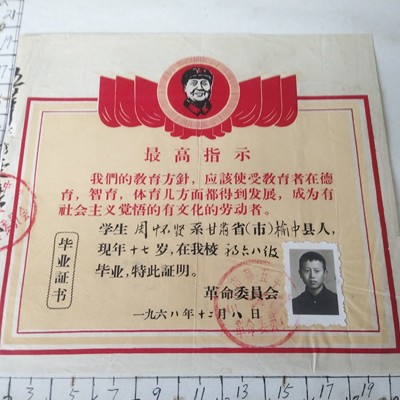 最高指示
我們的敎育方針，应該使受敎育者在德
育，智育，体育几方面都得到发展，成为有
社会主义覚悟的有文化的劳动者。
学生 周怀贤 系甘肃省(市)榆中县人，
现年十七岁，在我校 初六八级
毕业，特此証明。
毕业証书
革命委員会
一九六八年十二月八日
3 5 7 9 11 13 15 17 19